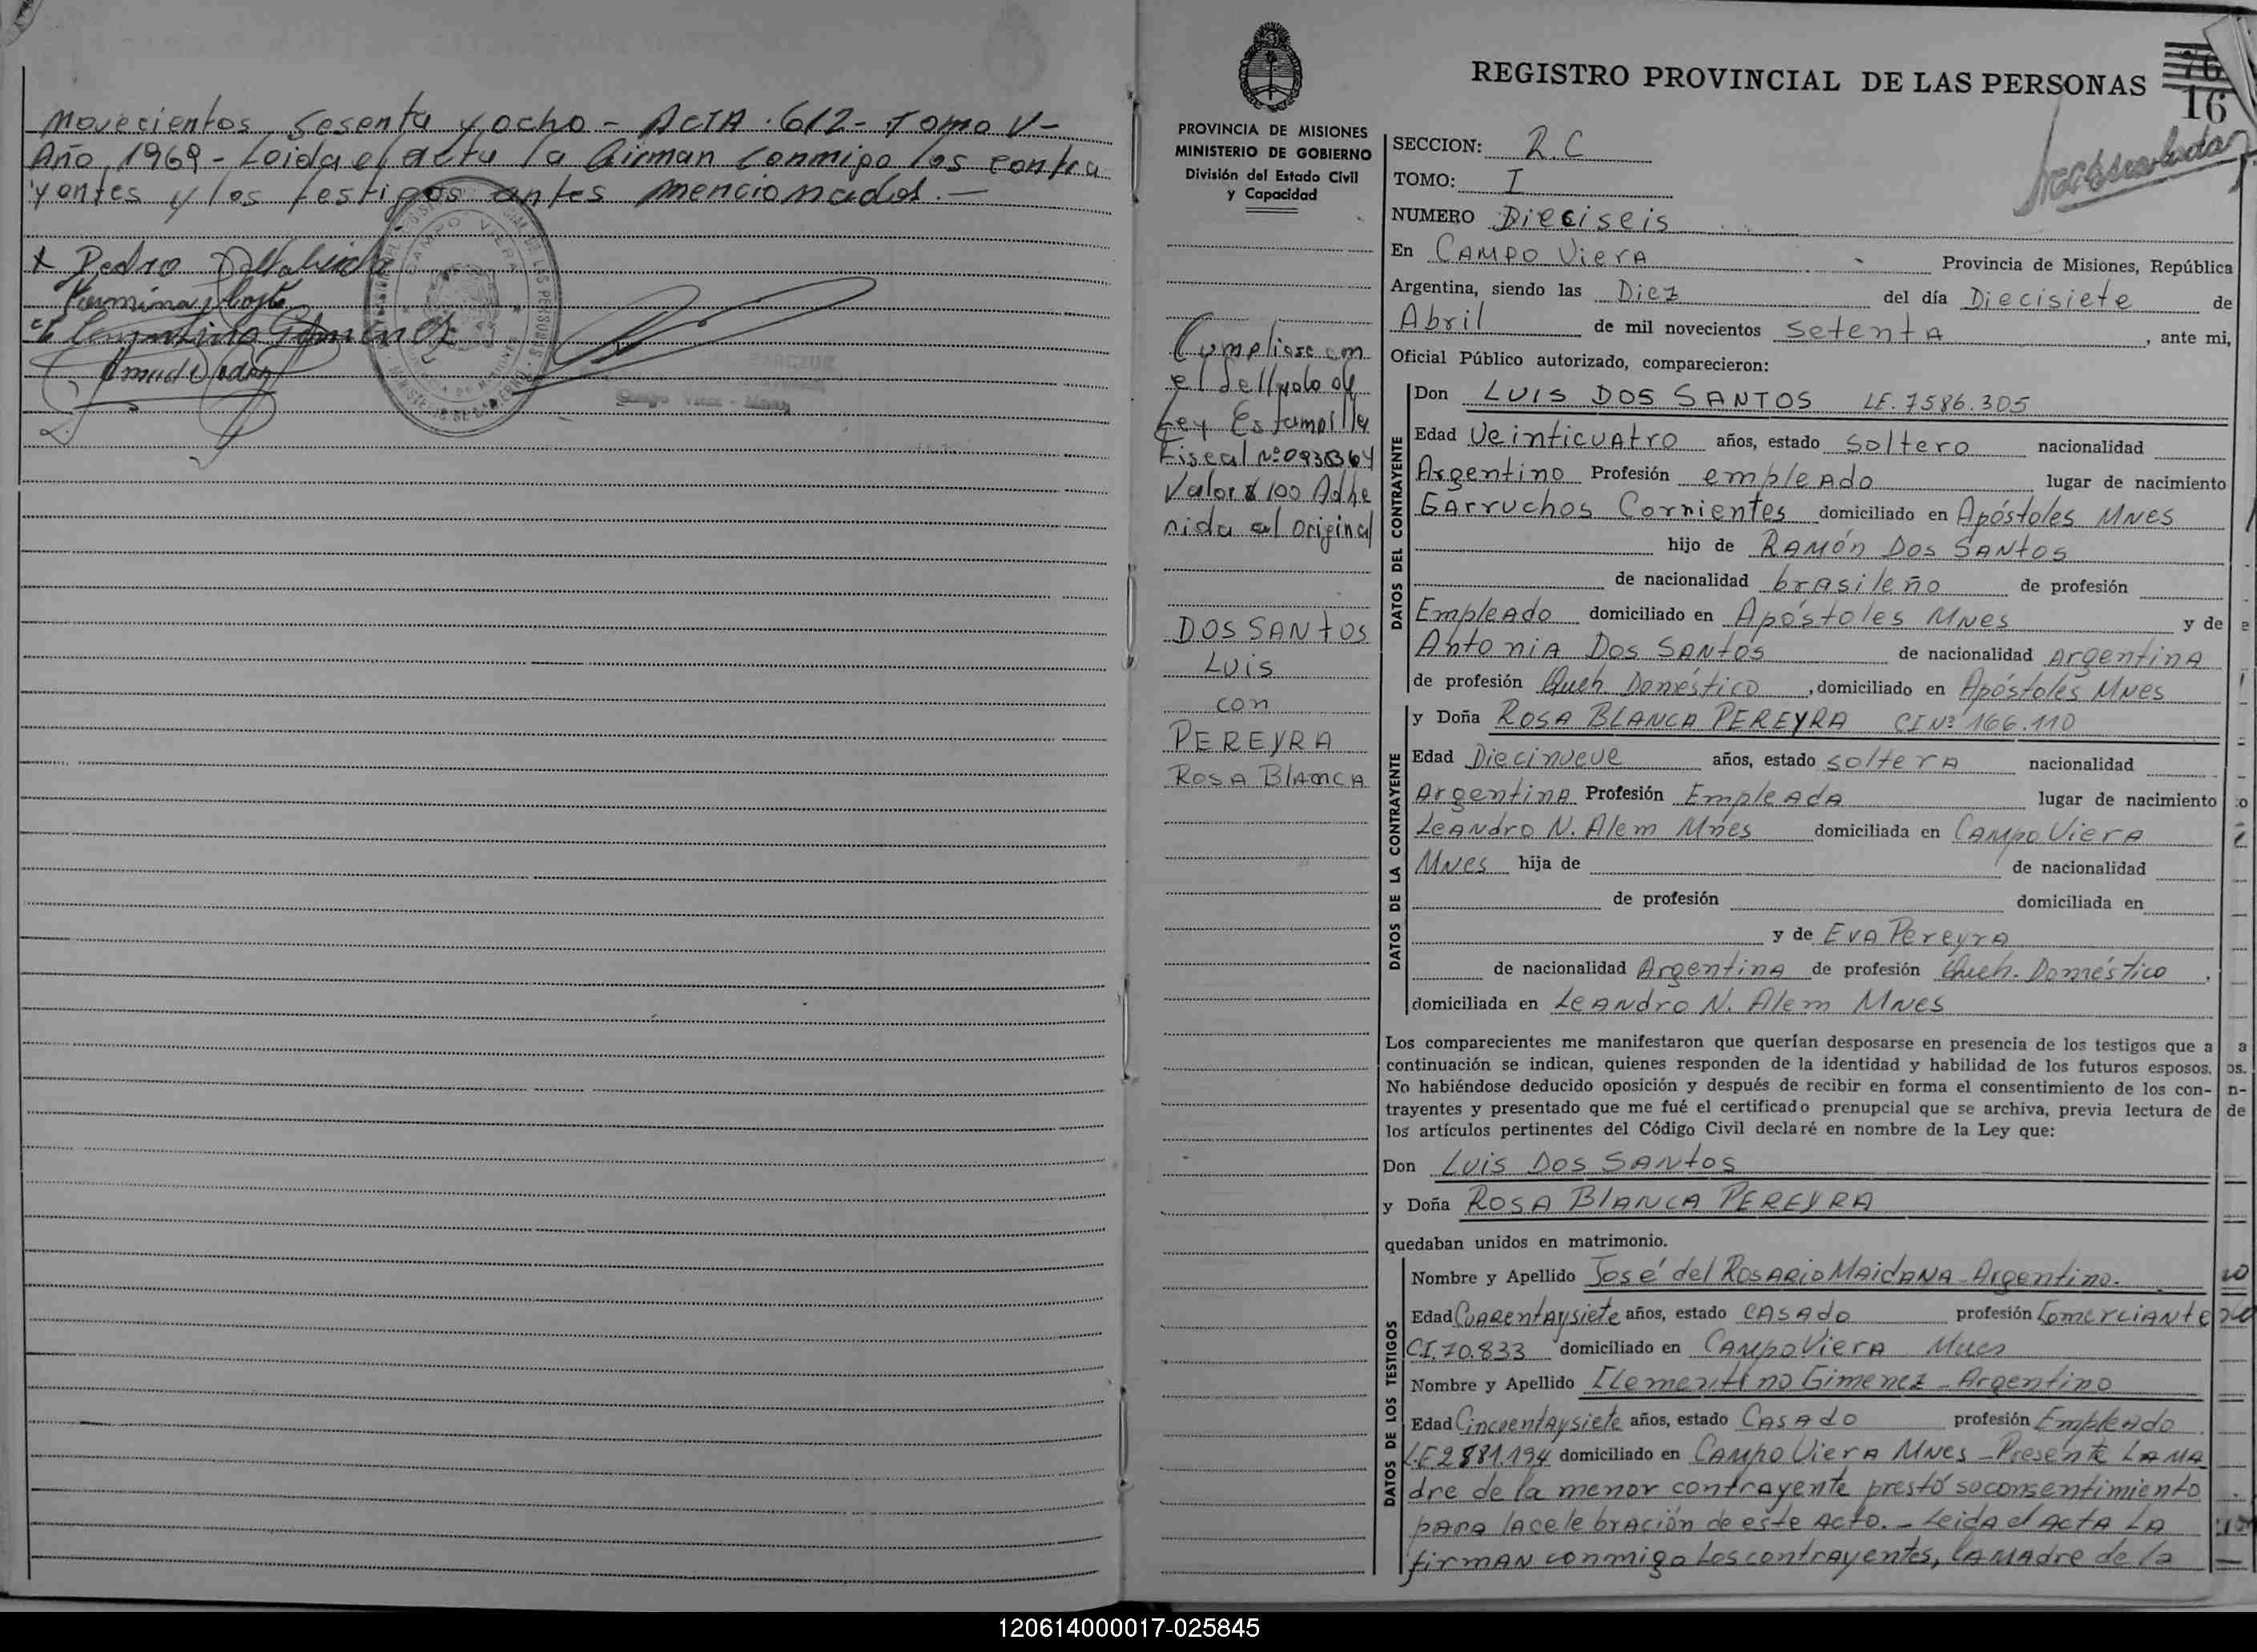 Novecientos sesenta y ocho - ACTA 612 - Tomo V -
Año 1969 - Leida el acta la firman conmigo los contra
yentes y los testigos antes mencionados. -
Pedro
CAMPO VIERA
Campo Viera - Mnes
REGISTRO PROVINCIAL DE LAS PERSONAS
76
16
PROVINCIA DE MISIONES
MINISTERIO DE GOBIERNO
División del Estado Civil
y Capacidad
Cumpliose con
el Sellado de
Ley Estampilla
Fiscal Nº
Valor $ 100 Adhe
rida al original
DOS SANTOS
LUIS
con
PEREYRA
ROSA BLANCA
SECCION: R.C
TOMO: I
NUMERO Dieciseis
En CAMPO VierA Provincia de Misiones, República
Argentina, siendo las Diez del día Diecisiete de
Abril de mil novecientos setentA, ante mi,
Oficial Público autorizado, comparecieron:
DATOS DEL CONTRAYENTE
Don LUIS DOS SANTOS LE. 7586.305
Edad Veinticuatro años, estado soltero nacionalidad
Argentino Profesión empleado lugar de nacimiento
Garruchos Corrientes domiciliado en Apóstoles MNES
hijo de RAMÓN DOS SANTOS
de nacionalidad brasileño de profesión
Empleado domiciliado en Apóstoles MNES y de
Antonia Dos SANTOS de nacionalidad ArgentinA
de profesión Queh. Doméstico, domiciliado en Apóstoles MNES
DATOS DE LA CONTRAYENTE
y Doña ROSA BLANCA PEREYRA CI Nº 166.110
Edad Diecinueve años, estado solterA nacionalidad
ArgentinA Profesión EmpleAdA lugar de nacimiento
LeANdro N. Alem Mnes domiciliada en CAMpo VierA
MNes hija de de nacionalidad
de profesión domiciliada en
y de EvA PereyrA
de nacionalidad ArgentinA de profesión Queh. Doméstico,
domiciliada en LeANdro N. Alem MNes
Los comparecientes me manifestaron que querían desposarse en presencia de los testigos que a
continuación se indican, quienes responden de la identidad y habilidad de los futuros esposos.
No habiéndose deducido oposición y después de recibir en forma el consentimiento de los con-
trayentes y presentado que me fué el certificado prenupcial que se archiva, previa lectura de
los artículos pertinentes del Código Civil declaré en nombre de la Ley que:
Don Luis Dos SANtos
y Doña ROSA BLANCA PEREYRA
quedaban unidos en matrimonio.
DATOS DE LOS TESTIGOS
Nombre y Apellido José del ROSARIO MAIDANA - Argentino.
Edad Cuarentaysiete años, estado CASAdo profesión ComerciANte
C.I. 70.833 domiciliado en CAMpo VierA Mnes
Nombre y Apellido Clementino Gimenez - Argentino
Edad Cincuentaysiete años, estado CASAdo profesión EmpleAdo
L.E. 2881.194 domiciliado en CAMpo VierA MNes - Presente LA MA
dre de la menor contrayente prestó su consentimiento
para la celebración de este Acto. - Leida el ActA LA
firmAN conmigo Los contrayentes, la MAdre de la
120614000017-025845